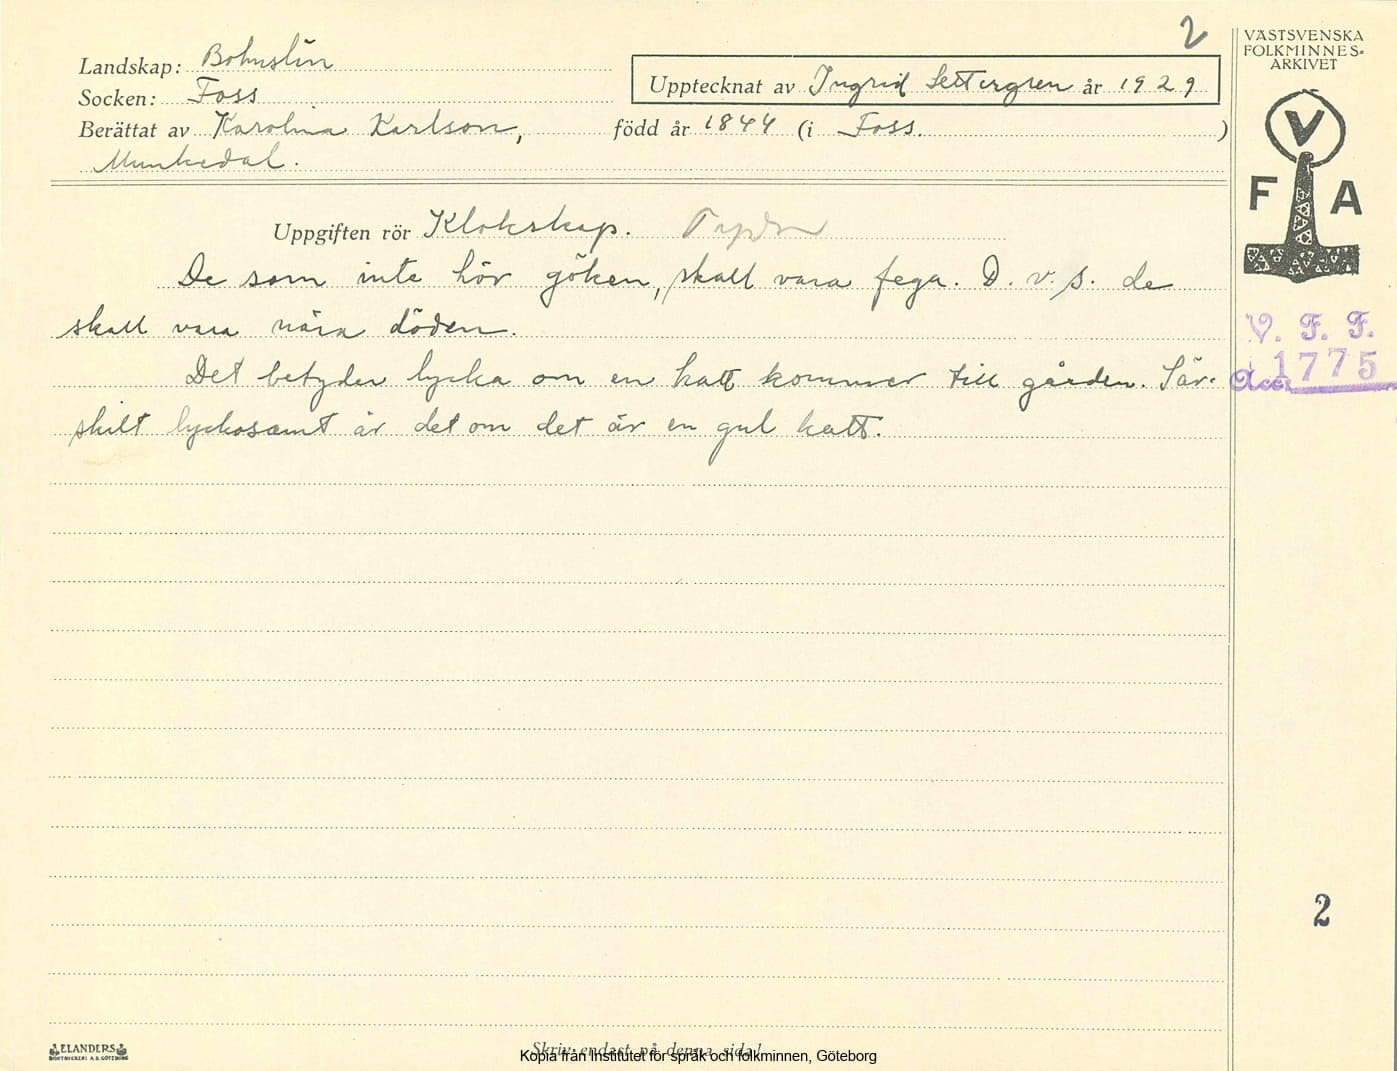 2
VÄSTSVENSKA
FOLKMINNES-
ARKIVET
Landskap: Bohuslän
Upptecknat av Ingrid Settergren år 1929
Socken: Foss
Berättat av Karolina Karlson, född år 1844 (i Foss. )
Munkedal.
V
F A
Uppgiften rör Klokskap.
De som inte hör göken, skall vara fega. D. v. s. de
skall vara nära döden.
V. F. F.
Acc. 1775
Det betyder lycka om en katt kommer till gården. Sär-
skilt lyckosamt är det om det är en gul katt.
2
ELANDERS
BOKTRYCKERI A.B. GÖTEBORG
Skriv endast på denna sida!
Kopia från Institutet för språk och folkminnen, Göteborg